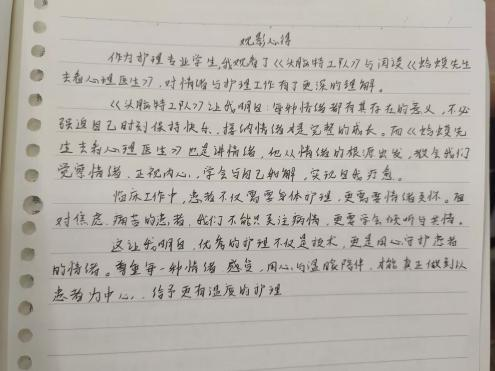 观影心得
作为护理专业学生,我观看了《头脑特工队》与阅读《蛤蟆先生
去看心理医生》,对情绪与护理工作有了更深的理解。
《头脑特工队》让我明白:每种情绪都有其存在的意义,不必
强迫自己时刻保持快乐,接纳情绪才是完整的成长。而《蛤蟆先
生去看心理医生》也是讲情绪,他从情绪的根源出发,教会我们
觉察情绪、正视内心,学会与自己和解,实现自我疗愈。
临床工作中,患者不仅需要身体护理,更需要情绪关怀。面
对焦虑、病苦的患者,我们不能只关注病情,更要学会倾听与共情。
这让我明白,优秀的护理不仅是技术,更是用心守护患者
的情绪。尊重每一种情绪感受,用心与温暖陪伴,才能真正做到以
患者为中心,给予更有温度的护理